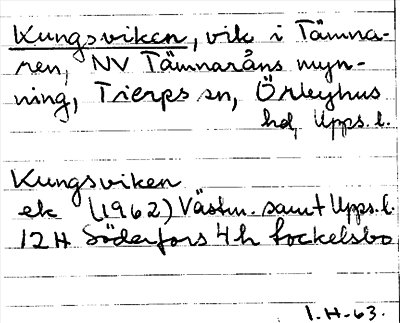 Kungsviken, vik i Tämna-
ren, NV Tämnaråns myn-
ning, Tierps sn, Örbyhus
hd, Upps. l.
Kungsviken
ek (1962) Västm. samt Upps. l.
12H Söderfors 4h Sockelsbo
1.H-63.